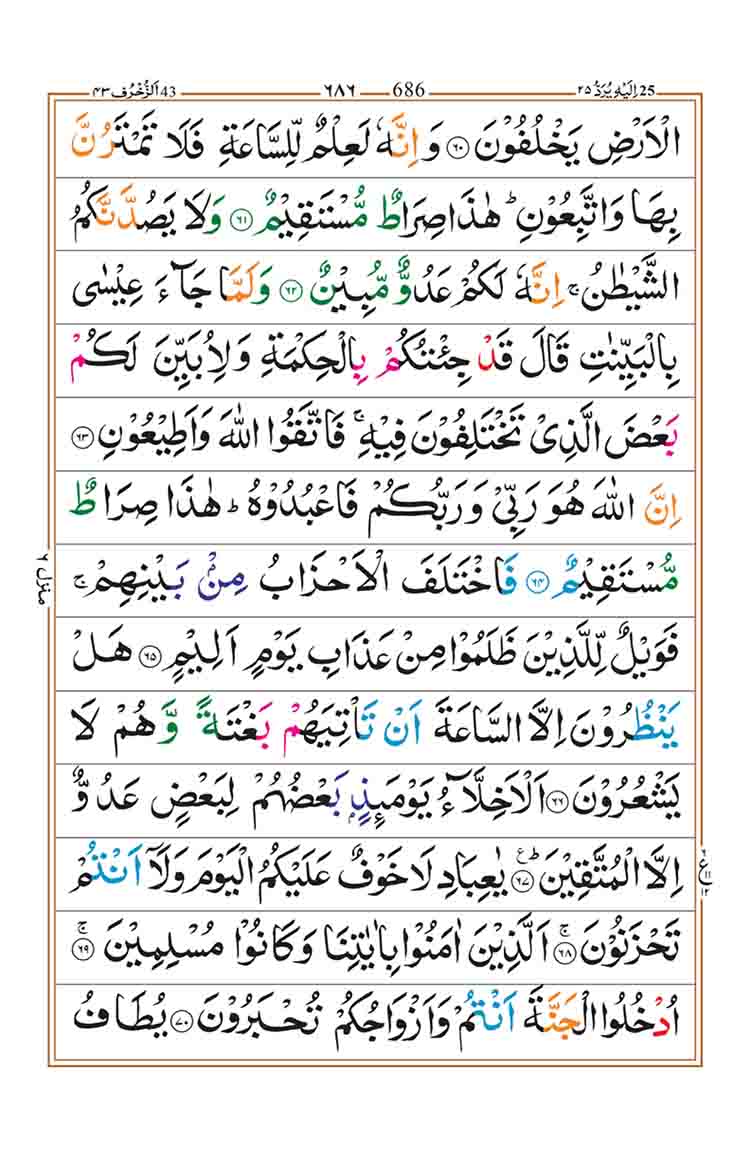 25 اِلَيْهِ يُرَدُّ ٢٥ — 686 — ٦٨٦ — 43 اَلزُّخْرُف ٤٣
الْاَرْضِ يَخْلُفُوْنَ ﴿٦٠﴾ وَ اِنَّهٗ لَعِلْمٌ لِّلسَّاعَةِ فَلَا تَمْتَرُنَّ
بِهَا وَاتَّبِعُوْنِ ؕ هٰذَا صِرَاطٌ مُّسْتَقِيْمٌ ﴿٦١﴾ وَلَا يَصُدَّنَّكُمُ
الشَّيْطٰنُ ۚ اِنَّهٗ لَكُمْ عَدُوٌّ مُّبِيْنٌ ﴿٦٢﴾ وَلَمَّا جَآءَ عِيْسٰى
بِالْبَيِّنٰتِ قَالَ قَدْ جِئْتُكُمْ بِالْحِكْمَةِ وَلِاُبَيِّنَ لَكُمْ
بَعْضَ الَّذِىْ تَخْتَلِفُوْنَ فِيْهِ ۚ فَاتَّقُوا اللّٰهَ وَاَطِيْعُوْنِ ﴿٦٣﴾
اِنَّ اللّٰهَ هُوَ رَبِّىْ وَرَبُّكُمْ فَاعْبُدُوْهُ ؕ هٰذَا صِرَاطٌ
مُّسْتَقِيْمٌ ﴿٦٤﴾ فَاخْتَلَفَ الْاَحْزَابُ مِنْۢ بَيْنِهِمْ ۚ
فَوَيْلٌ لِّلَّذِيْنَ ظَلَمُوْا مِنْ عَذَابِ يَوْمٍ اَلِيْمٍ ﴿٦٥﴾ هَلْ
يَنْظُرُوْنَ اِلَّا السَّاعَةَ اَنْ تَاْتِيَهُمْ بَغْتَةً وَّ هُمْ لَا
يَشْعُرُوْنَ ﴿٦٦﴾ اَلْاَخِلَّآءُ يَوْمَئِذٍۭ بَعْضُهُمْ لِبَعْضٍ عَدُوٌّ
اِلَّا الْمُتَّقِيْنَ ﴿٦٧﴾ؕع يٰعِبَادِ لَا خَوْفٌ عَلَيْكُمُ الْيَوْمَ وَلَاۤ اَنْتُمْ
تَحْزَنُوْنَ ﴿٦٨﴾ۚ اَلَّذِيْنَ اٰمَنُوْا بِاٰيٰتِنَا وَكَانُوْا مُسْلِمِيْنَ ﴿٦٩﴾ۚ
اُدْخُلُوا الْجَنَّةَ اَنْتُمْ وَاَزْوَاجُكُمْ تُحْبَرُوْنَ ﴿٧٠﴾ يُطَافُ
منزل ٦
ع ١١ ١٢